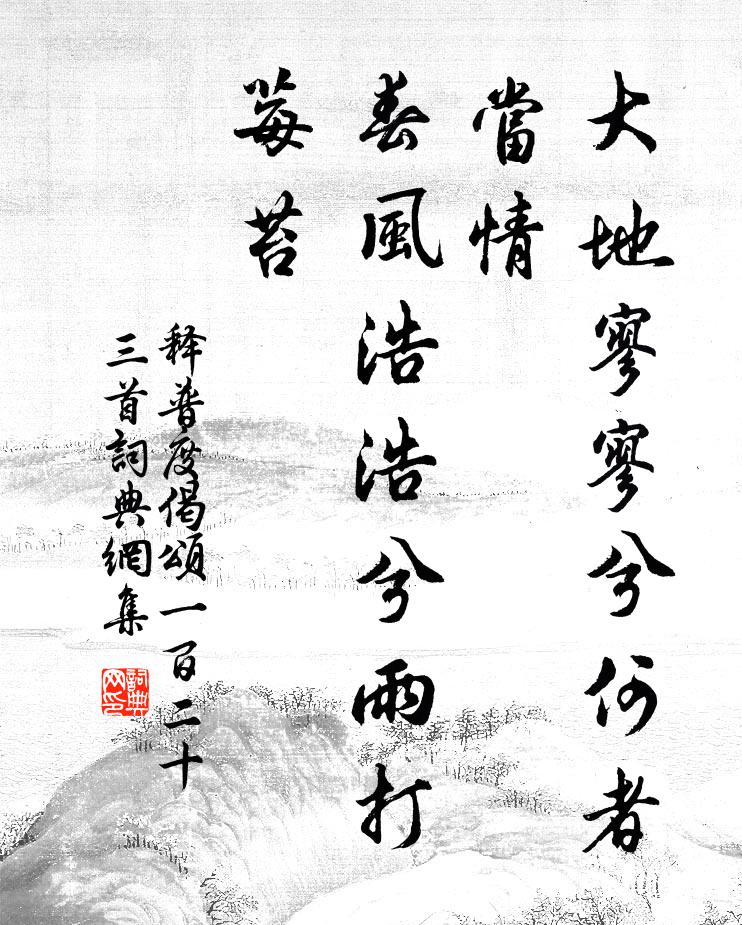 大地寥寥兮何者
當情
春風浩浩兮雨打
莓苔
释普度偈頌一百二十
三首詞典網集
詞典
网印